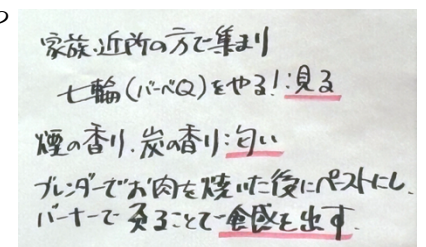 つ
家族、近所の方で集まり
七輪(バーベQ)をやる!:見る
煙の香り、炭の香り:匂い
ブレンダーでお肉を焼いた後にペストにし、
バーナーで炙ることで食感を出す